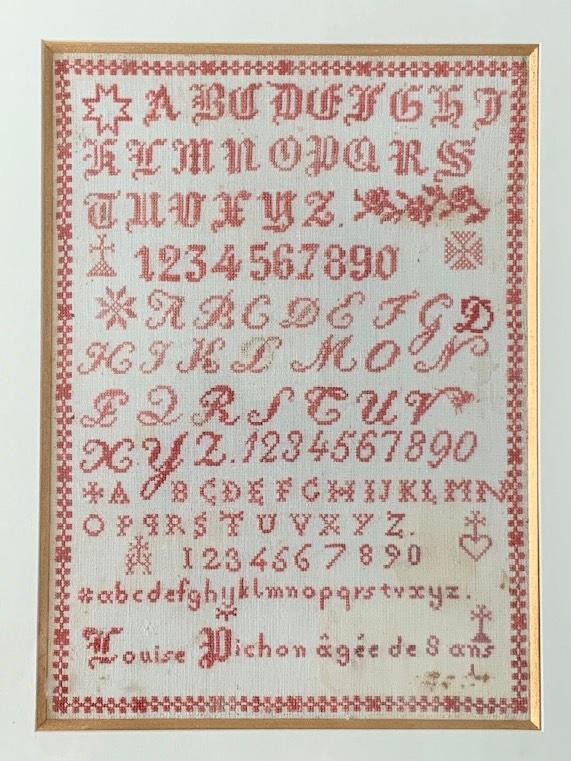 A B C D E F G H I
K L M N O P Q R S
T U V X Y Z.
1234567890
A B C D E F G D
H I K L M O N
P Q R S T U V
X Y Z. 1234567890
*A B C D E F G H I J K L M N
O P Q R S T U V X Y Z.
1234567890
*abcdefghijklmnopqrstvxyz.
Louise Pichon âgée de 8 ans